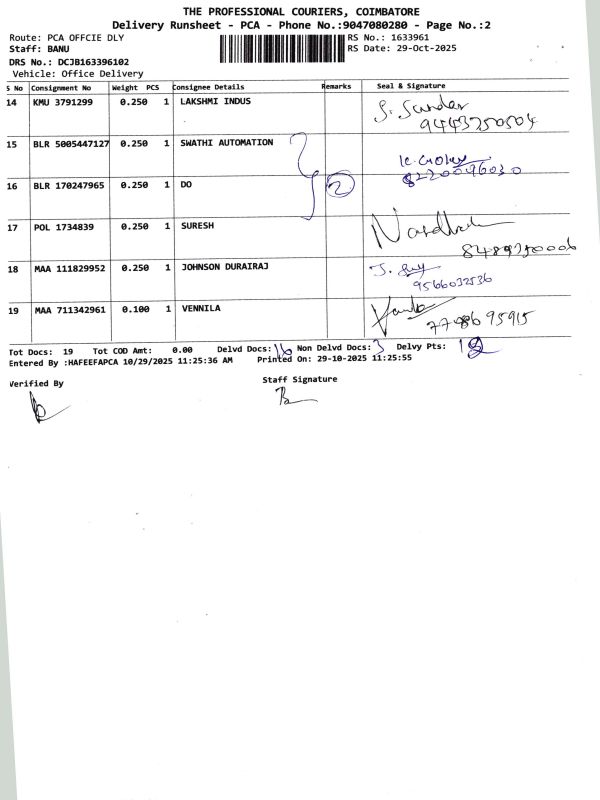 THE PROFESSIONAL COURIERS, COIMBATORE
Delivery Runsheet - PCA - Phone No.:9047080280 - Page No.:2
Route: PCA OFFCIE DLY
RS No.: 1633961
Staff: BANU
RS Date: 29-Oct-2025
DRS No.: DCJB163396102
Vehicle: Office Delivery
S No Consignment No Weight PCS Consignee Details Remarks Seal & Signature
14 KMU 3791299 0.250 1 LAKSHMI INDUS S. Sundar
9443250504
15 BLR 5005447127 0.250 1 SWATHI AUTOMATION
8220096030
16 BLR 170247965 0.250 1 DO 2
17 POL 1734839 0.250 1 SURESH
18 MAA 111829952 0.250 1 JOHNSON DURAIRAJ
9566032536
19 MAA 711342961 0.100 1 VENNILA
Tot Docs: 19 Tot COD Amt: 0.00 Delvd Docs: 16 Non Delvd Docs: 3 Delvy Pts:
Entered By :HAFEEFAPCA 10/29/2025 11:25:36 AM Printed On: 29-10-2025 11:25:55
Verified By
Staff Signature